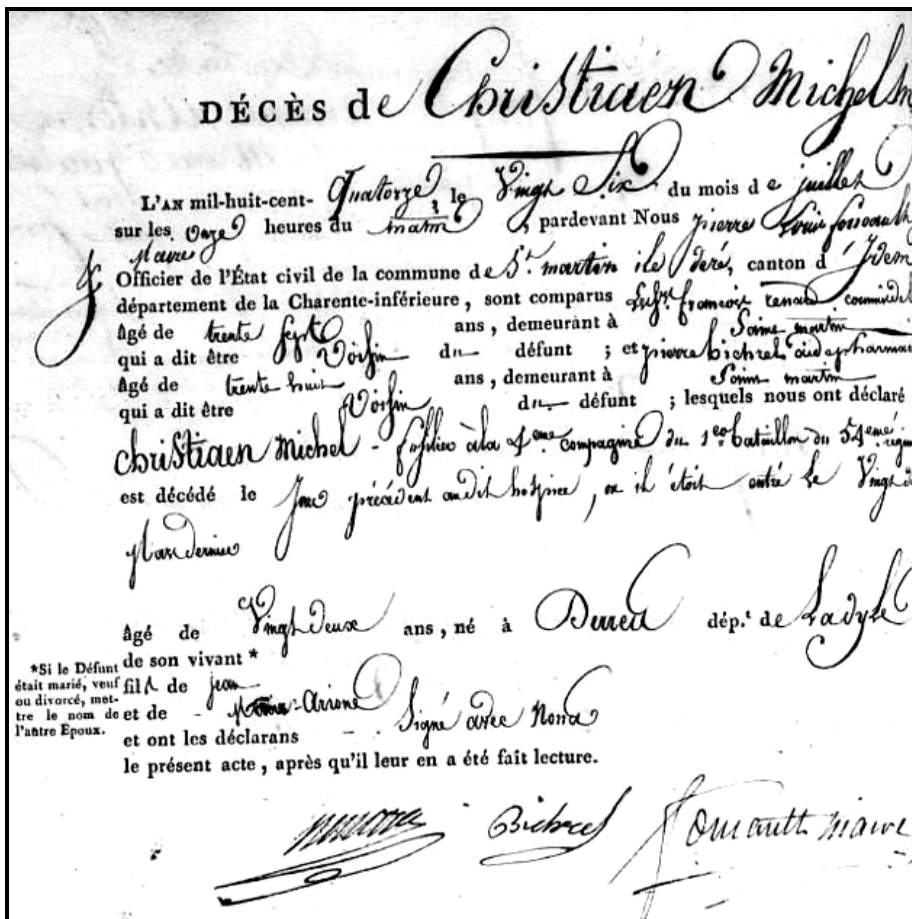 DÉCÈS de Christiaen Michel
L'AN mil-huit-cent- Quatorze le Vingt Six du mois d e juillet
sur les Onze heures du matin, pardevant Nous pierre Louis
Maire
Officier de l'État civil de la commune de St. martin ile déré, canton d' Idem
département de la Charente-inférieure, sont comparus francois renaud
âgé de trente sept ans, demeurant à Saint martin
qui a dit être Voisin du défunt ; et pierre bichrel aide pharmac
âgé de trente huit ans, demeurant à Saint martin
qui a dit être Voisin du défunt ; lesquels nous ont déclaré
christiaen Michel - fusilier à la 4eme compagnie du 1er bataillon du 54eme régim
est décédé le Jour précédent audit hospice, ou il étoit entré le Vingt
Mars dernier
âgé de Vingt deux ans, né à dép.t de Ladyle
de son vivant *
*Si le Défunt était marié, veuf ou divorcé, mettre le nom de l'autre Époux.
fils de jean
et de
et ont les déclarans Signé avec Nous
le présent acte, après qu'il leur en a été fait lecture.
Bichrel maire